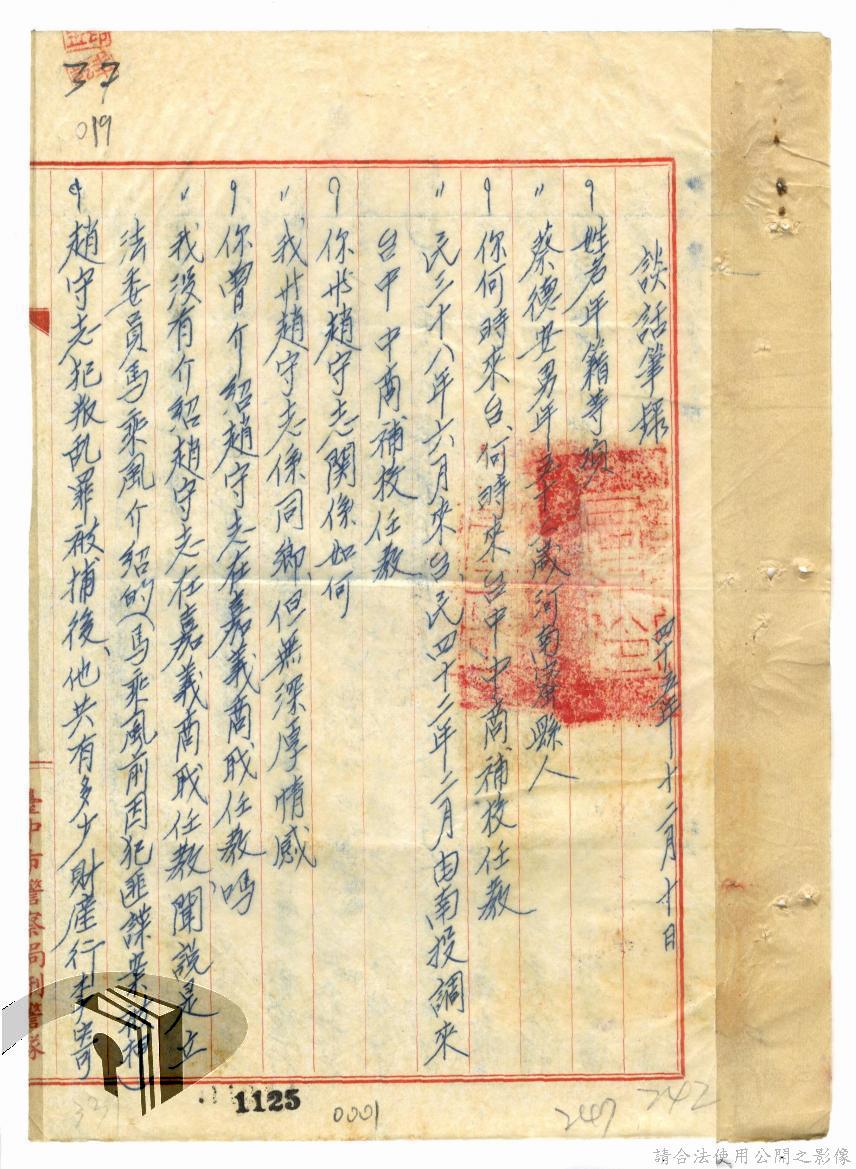 談話筆錄
四十五年十二月十日
？姓名年籍等項
〃蔡德安男年五十 歲河南 縣人
？你何時來台、何時來台中中商補校任教
〃民三十八年六月來台民四十二年二月由南投調來
台中中商補校任教
？你與趙守志関係如何
〃我與趙守志係同鄉、但無深厚情感
？你曾介紹趙守志在嘉義商职任教嗎
〃我没有介紹趙守志在嘉義商职任教、聞說是立
法委員馬乘風介紹的(馬乘風前因犯匪諜案被押)
？趙守志犯叛乱罪被捕後、他共有多少財產行李寄
臺中市警察局刑警隊
37
019
1125
0001
247
242
請合法使用公開之影像